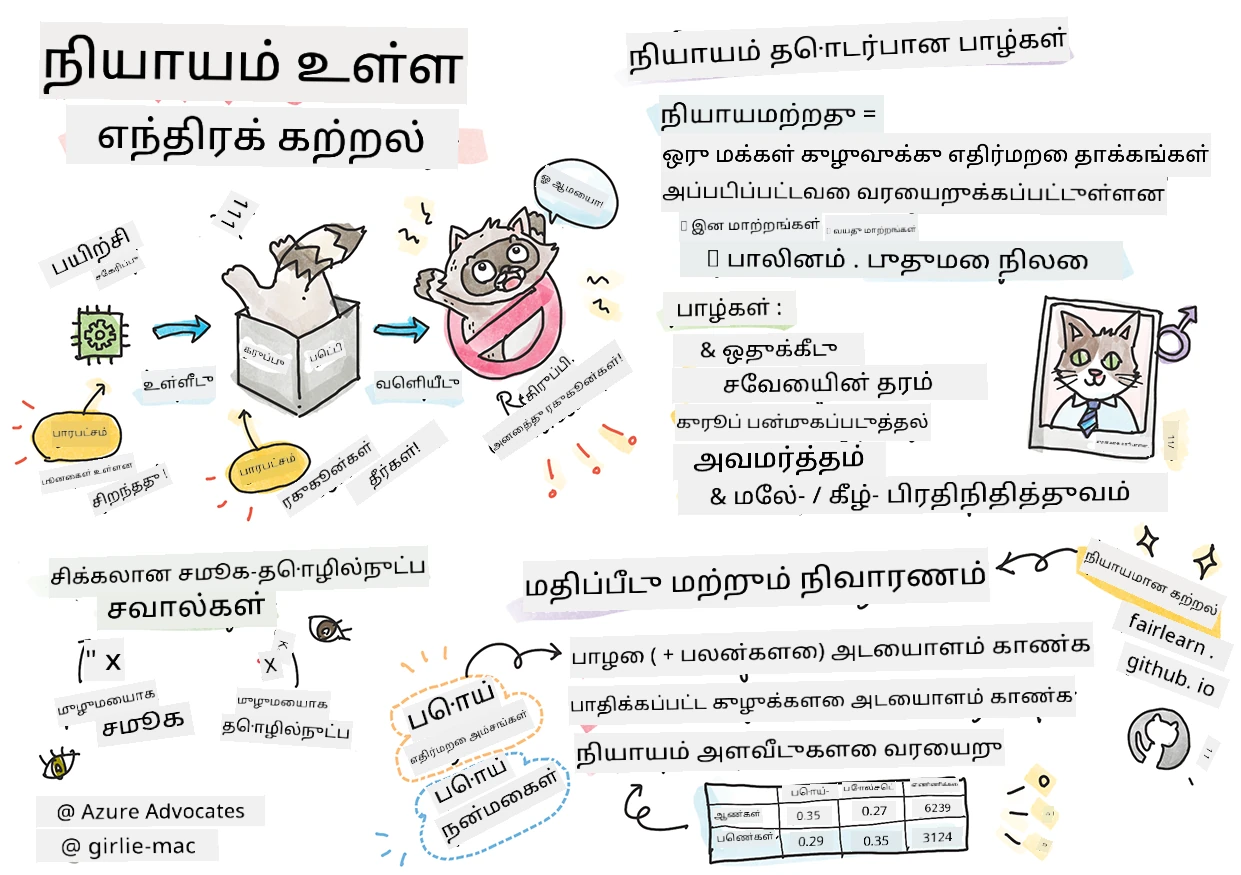 நியாயம் உள்ள
எந்திரக் கற்றல்
பயிற்சி
சேகரிப்பு
உள்ளீடு
கருப்பு
பெட்டி
வெளியீடு
ஓ ஆமையா!
அனைத்து ரக்கூன்கள்!
பாரபட்சம்
சிறந்தது !
பாரபட்சம்
ரகுகூன்கள்
தீர்கள்!
நியாயம் தொடர்பான பாழ்கள்
நியாயமற்றது =
ஒரு மக்கள் குழுவுக்கு எதிர்மறை தாக்கங்கள்
அப்படிப்பட்டவை வரையறுக்கப்பட்டுள்ளன
இன மாற்றங்கள் வயது மாற்றங்கள்
பாலினம் . புதுமை நிலை
பாழ்கள் :
& ஒதுக்கீடு
சேவையின் தரம்
குரூப் பன்முகப்படுத்தல்
அவமர்த்தம்
& மேல்- / கீழ்- பிரதிநிதித்துவம்
சிக்கலான சமூக-தொழில்நுட்ப
சவால்கள்
" X
முழுமையாக
சமூக
X
முழுமையாக
தொழில்நுட்ப
@ Azure Advocates
@ girlie-mac
மதிப்பீடு மற்றும் நிவாரணம்
நியாயமான கற்றல்
fairlearn .
github. io
பாழை ( + பலன்களை) அடையாளம் காண்க
பாதிக்கப்பட்ட குழுக்களை அடையாளம் காண்க
நியாயம் அளவீடுகளை வரையறு
பொய்
எதிர்மறை அம்சங்கள்
பொய்
நன்மைகள்
பொய்-
ஆண்கள் 0.35 0.27 6239
பெண்கள் 0.29 0.35 3124